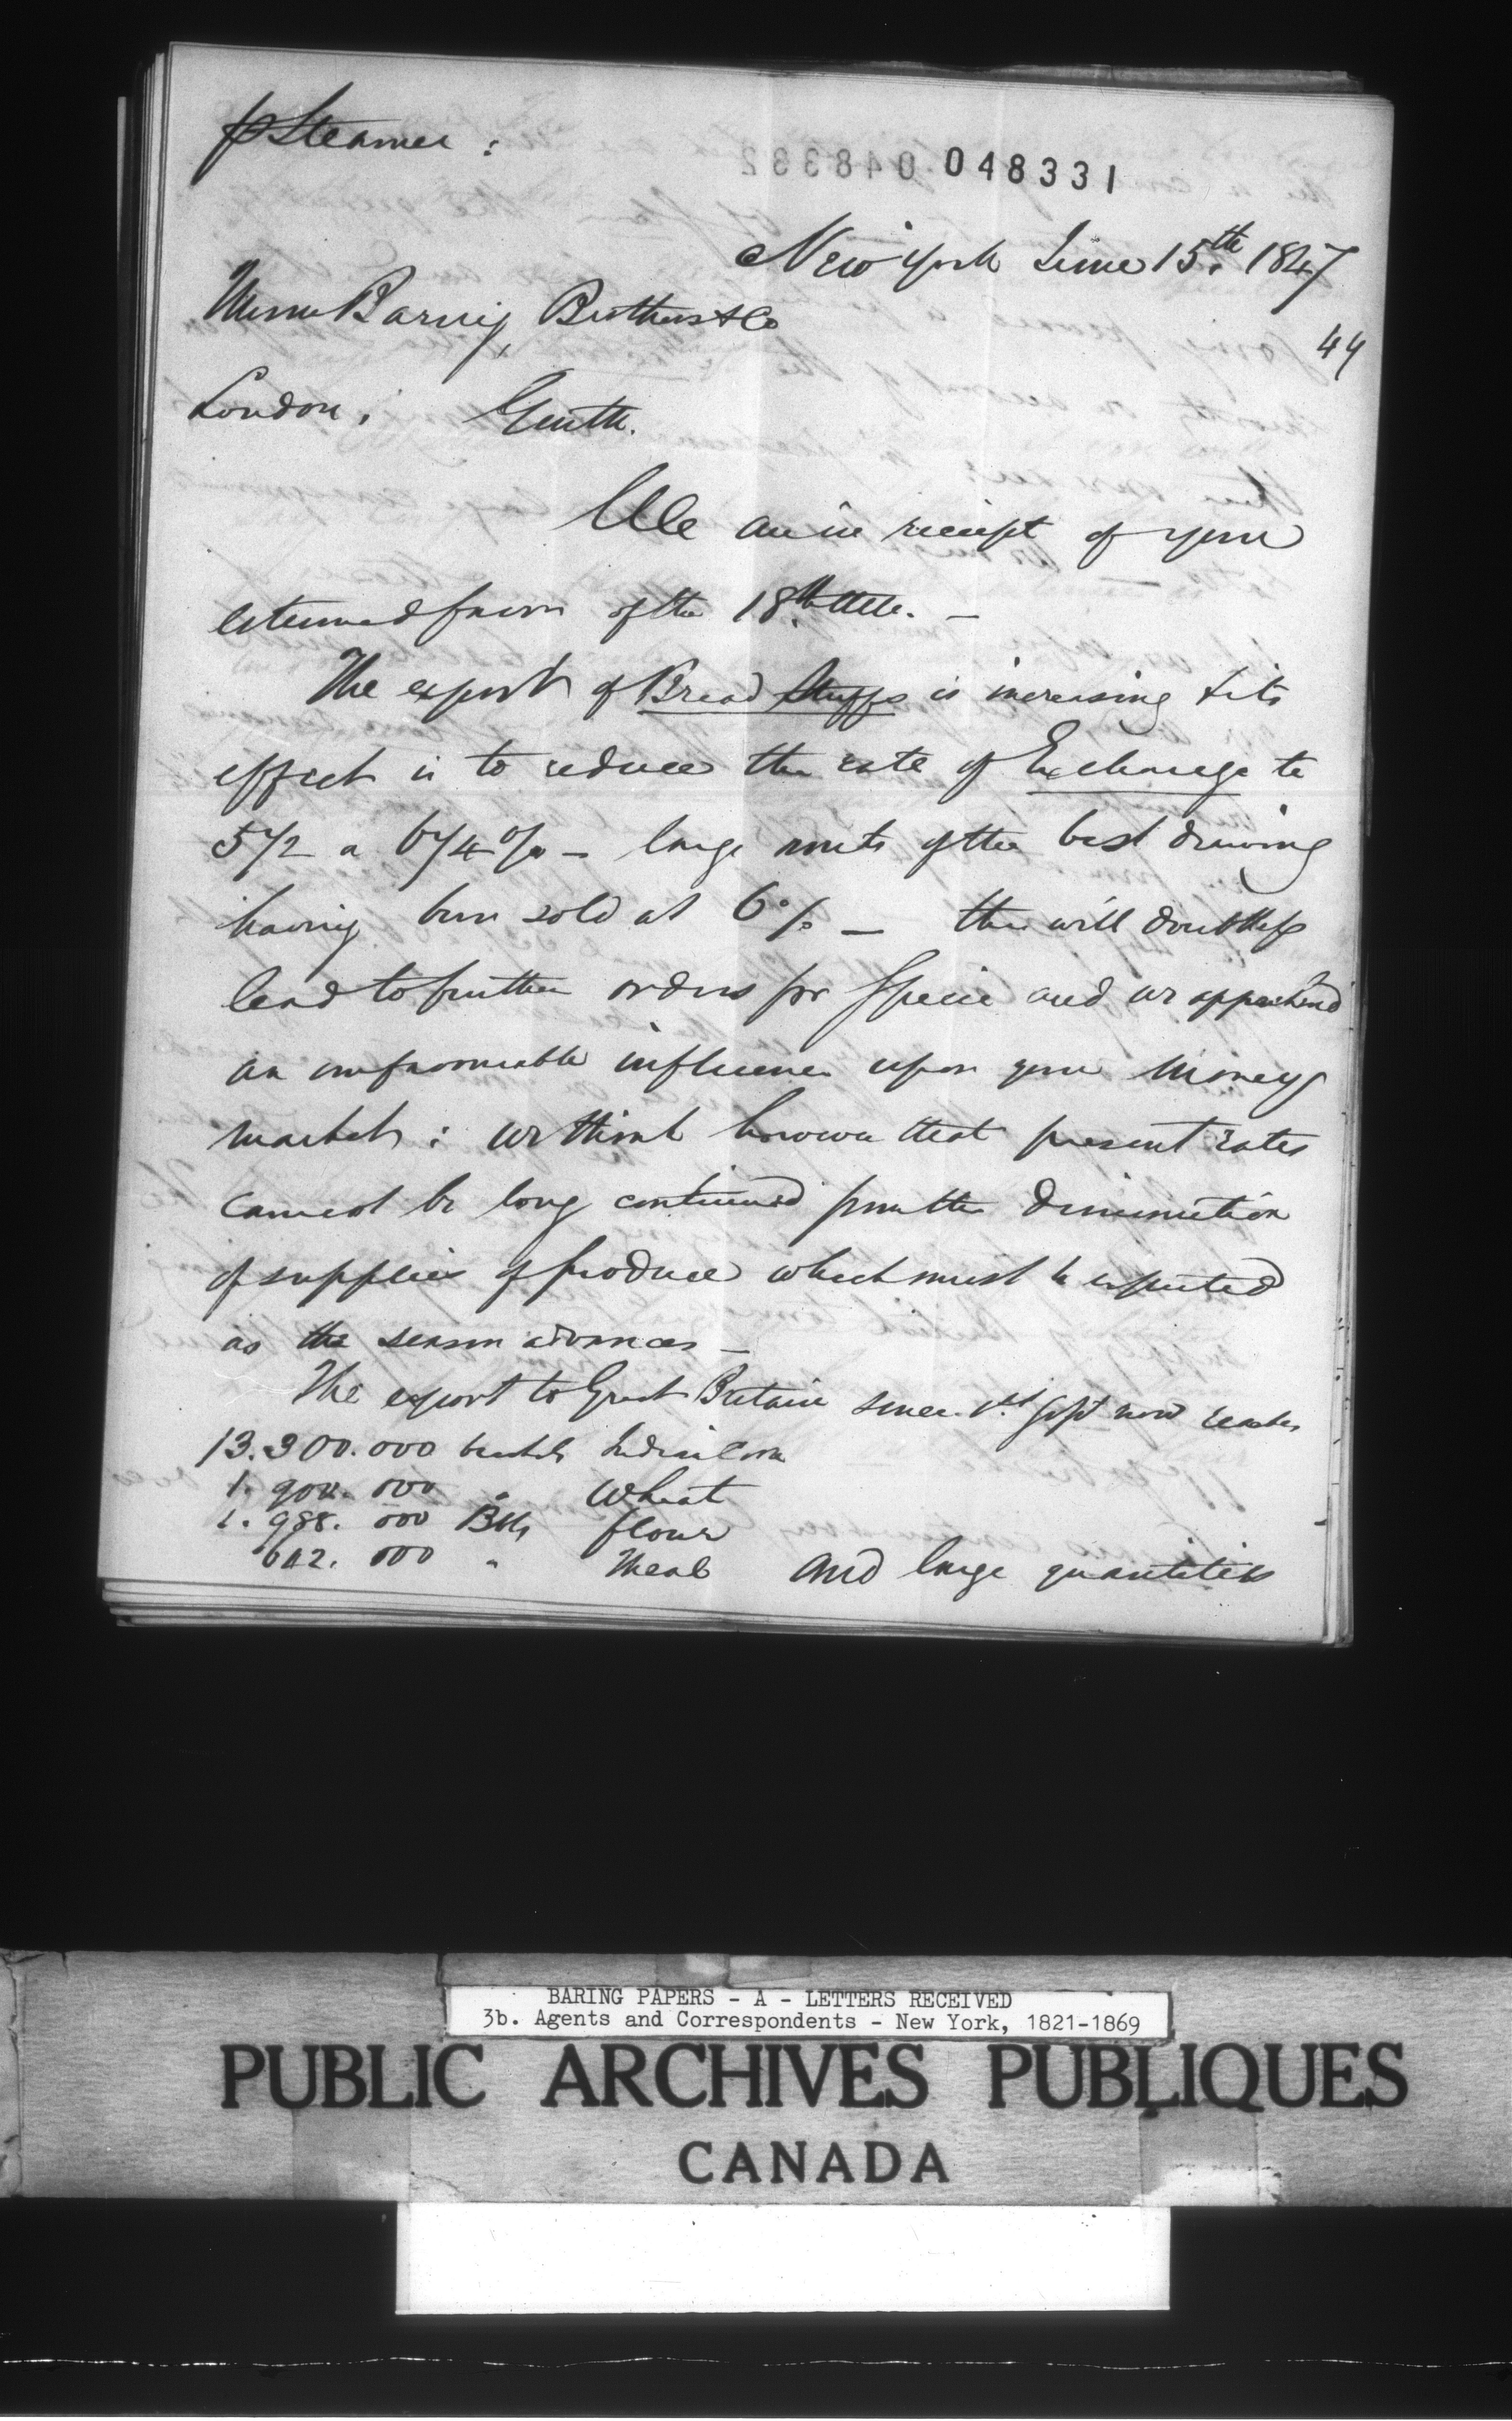 p Steamer :
048332 048331
New York June 15th 1847
Messrs Baring, Brothers & Co
44
London, Gentn.
We are in receipt of your
esteemed favor of the 18th ulto. —
The export of Bread Stuffs is increasing & its
effect is to reduce the rate of Exchange to
5 1/2 a 6 1/4 % — large amts of the best drawing
having been sold at 6 % — this will doubtless
lead to further orders for Specie and we apprehend
an unfavourable influence upon your money
market : we think however that present rates
cannot be long continued from the diminution
of supplies of produce which must be expected
as the season advances —
The export to Great Britain since 1st Sept now reaches
13.300.000 bushels Indian Corn
000 " Wheat
1.988.000 Bbls flour
000 " Meal and large quantities
BARING PAPERS - A - LETTERS RECEIVED
3b. Agents and Correspondents - New York, 1821-1869
PUBLIC ARCHIVES PUBLIQUES
CANADA